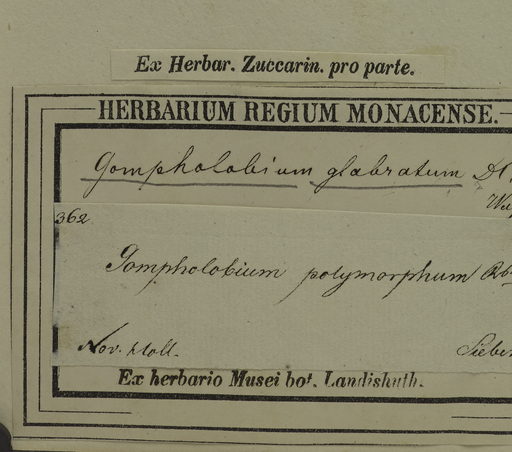 Ex Herbar. Zuccarin. pro parte.
HERBARIUM REGIUM MONACENSE.
Gompholobium glabratum DC.
362
Gompholobium polymorphum RBr
Nov. Holl. Sieber
Ex herbario Musei bot. Landishuth.